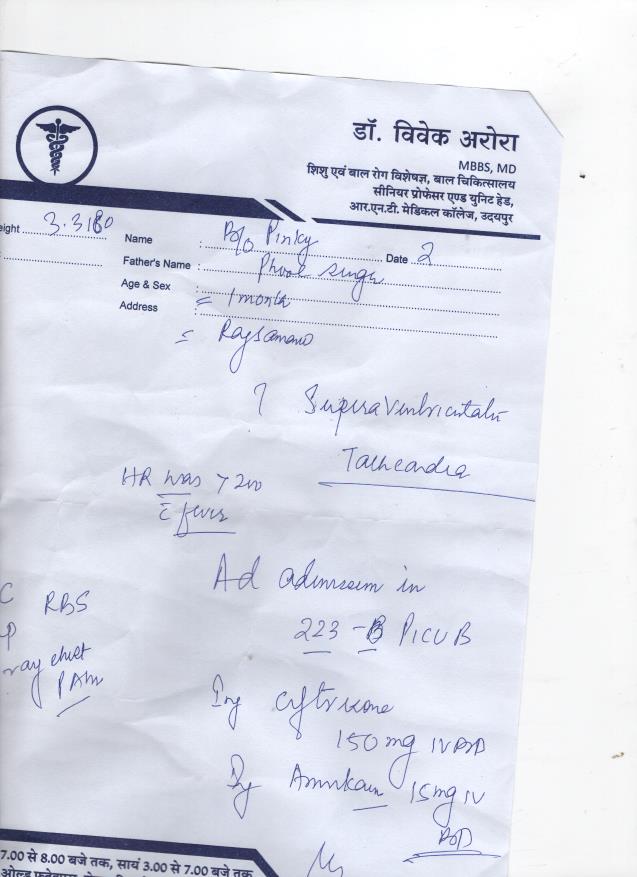 डॉ. विवेक अरोरा
MBBS, MD
शिशु एवं बाल रोग विशेषज्ञ, बाल चिकित्सालय
सीनियर प्रोफेसर एण्ड युनिट हेड,
आर.एन.टी. मेडिकल कॉलेज, उदयपुर
eight 3.3180
Name : B/o Pinky Date 2
Father's Name : Phool Singh
Age & Sex : = 1 month
Address :
= Rajsamand
? Supraventricular
Tachcardia
HR was > 200
c̄ fever
Ad admission in
223 - B PICU B
C RBS
P
ray chest
PAM
Inj ceftrixone
150 mg IV BD
Inj Amikacin 15 mg IV
BD
7.00 से 8.00 बजे तक, सायं 3.00 से 7.00 बजे तक
ओल्ड फतेहपुरा,